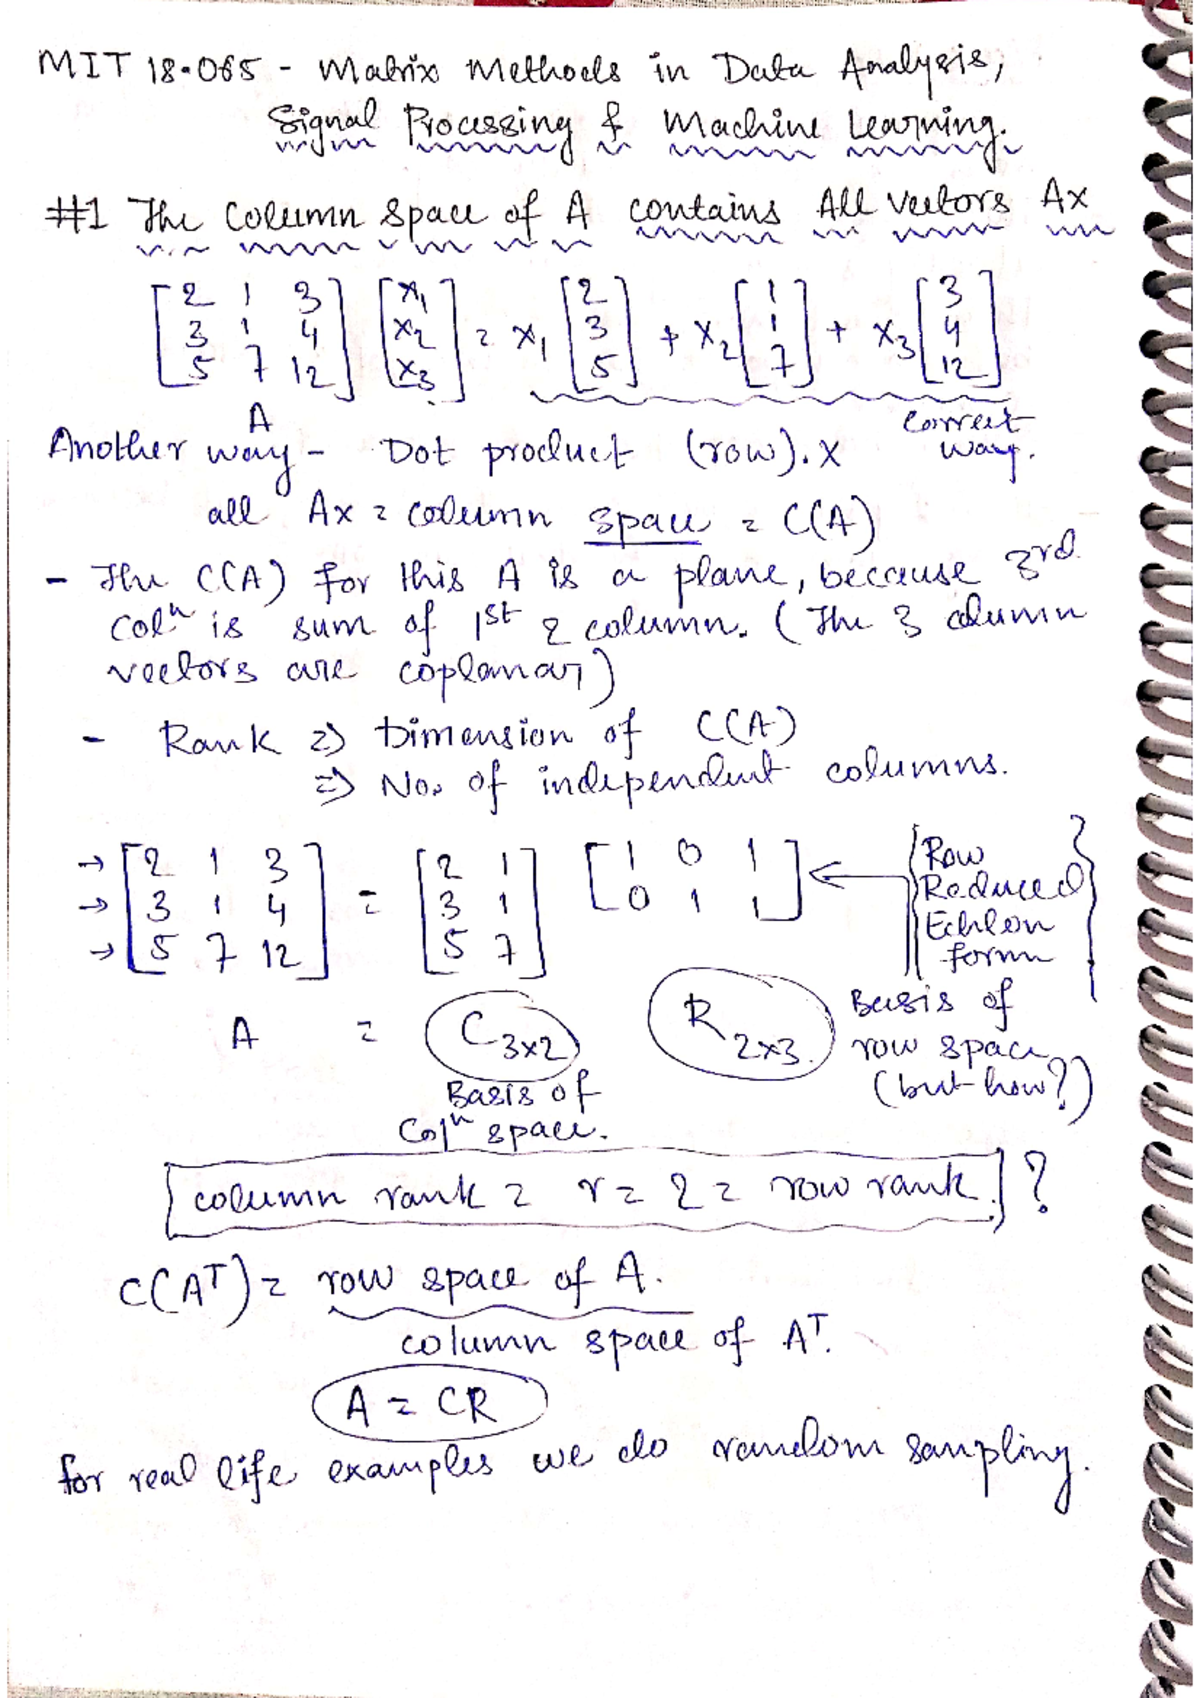 MIT 18.065 - Matrix Methods in Data Analysis,
Signal Processing & Machine Learning.
#1 The Column Space of A contains All Vectors Ax
[2 1 3; 3 1 4; 5 7 12] [x1; x2; x3] = x1 [2; 3; 5] + x2 [1; 1; 7] + x3 [3; 4; 12]
A
Correct way.
Another way - Dot product (row).x
all Ax = column space = C(A)
- The C(A) for this A is a plane, because 3rd
colⁿ is sum of 1st 2 column. (The 3 column
vectors are coplanar)
- Rank => Dimension of C(A)
=> No. of independent columns.
→ → → [2 1 3; 3 1 4; 5 7 12] = [2 1; 3 1; 5 7] [1 0 1; 0 1 1] ← Row Reduced Echlon form
A = C3x2 R2x3
Basis of Colⁿ space.
Basis of row space (but how?)
column rank = r = 2 = row rank. ?
C(Aᵀ) = row space of A.
column space of Aᵀ.
A = CR
for real life examples we do random sampling.